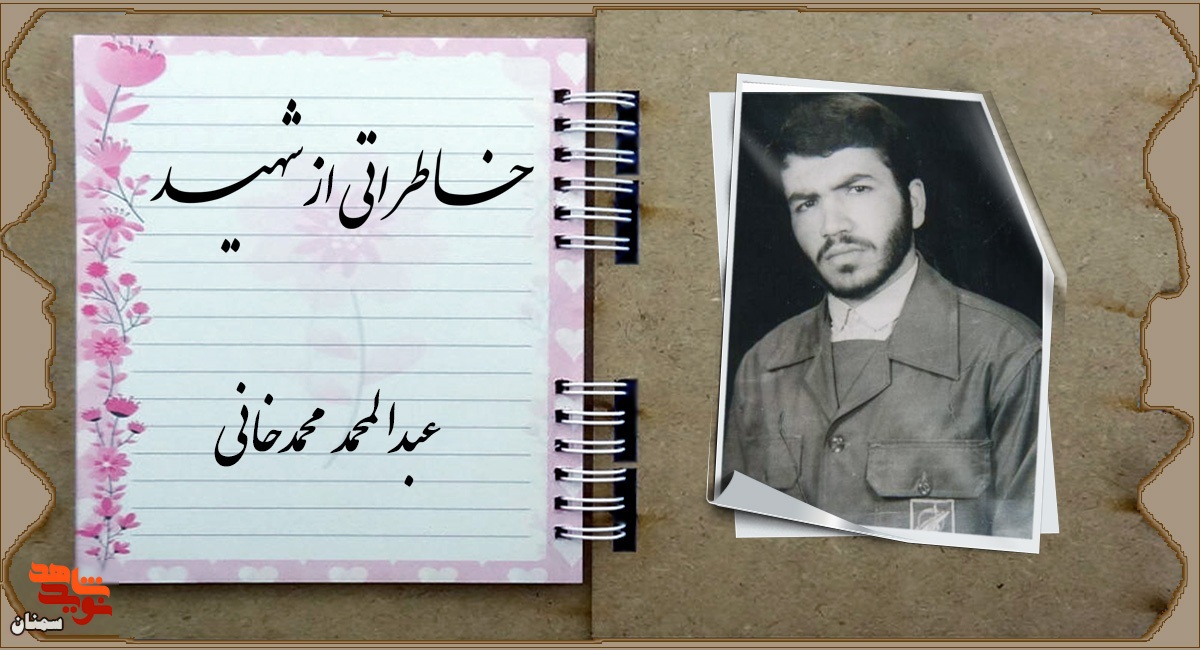 خاطراتی از شهید
عبدالمحمد محمدخانی
نوید شاهد
سمنان